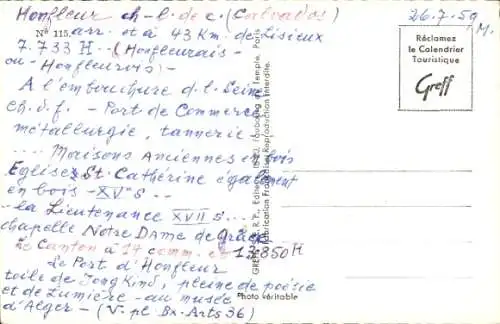 Honfleur ch-l. de c. (Calvados)
26.7.59
M.
Nº 115 arr. et à 43 Km. de Lisieux
7.733 H - (Honfleurais -
ou - Honfleurois) -
A l'embouchure d. l. Seine
ch. d. f. - Port de Commerce
métallurgie, tannerie -
.... Maisons Anciennes en bois
Eglises St. Catherine également
en bois - XVº s...
- la Lieutenance XVII s...
chapelle Notre Dame de Grâce
Le Canton a 14 comm. et 13.850 H
Le Port d'Honfleur
toile de Jongkind, pleine de poésie
et de Lumière - au musée
d'Alger - (V. pl. Bx-Arts 36)
Réclamez
le Calendrier
Touristique
Greff
Faubourg du Temple, Paris
Fabrication Française Reproduction Interdite.
Photo véritable